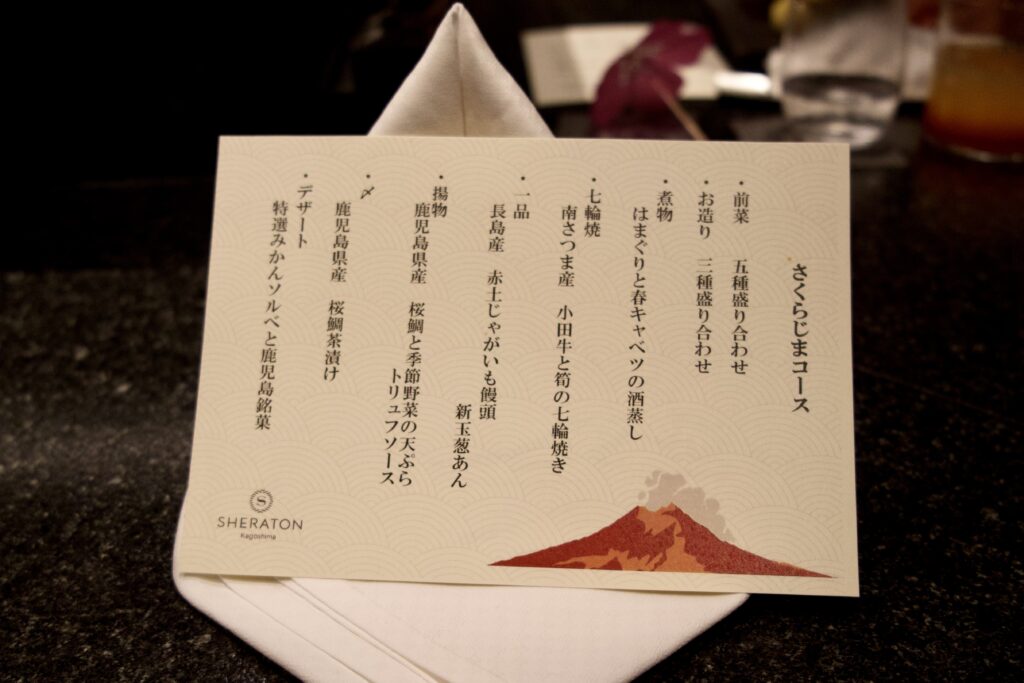 さくらじまコース
・前菜　五種盛り合わせ
・お造り　三種盛り合わせ
・煮物
はまぐりと春キャベツの酒蒸し
・七輪焼
南さつま産　小田牛と筍の七輪焼き
・一品
長島産　赤土じゃがいも饅頭
新玉葱あん
・揚物
鹿児島県産　桜鯛と季節野菜の天ぷら
トリュフソース
・〆
鹿児島県産　桜鯛茶漬け
・デザート
特選みかんソルベと鹿児島銘菓
S
SHERATON
Kagoshima